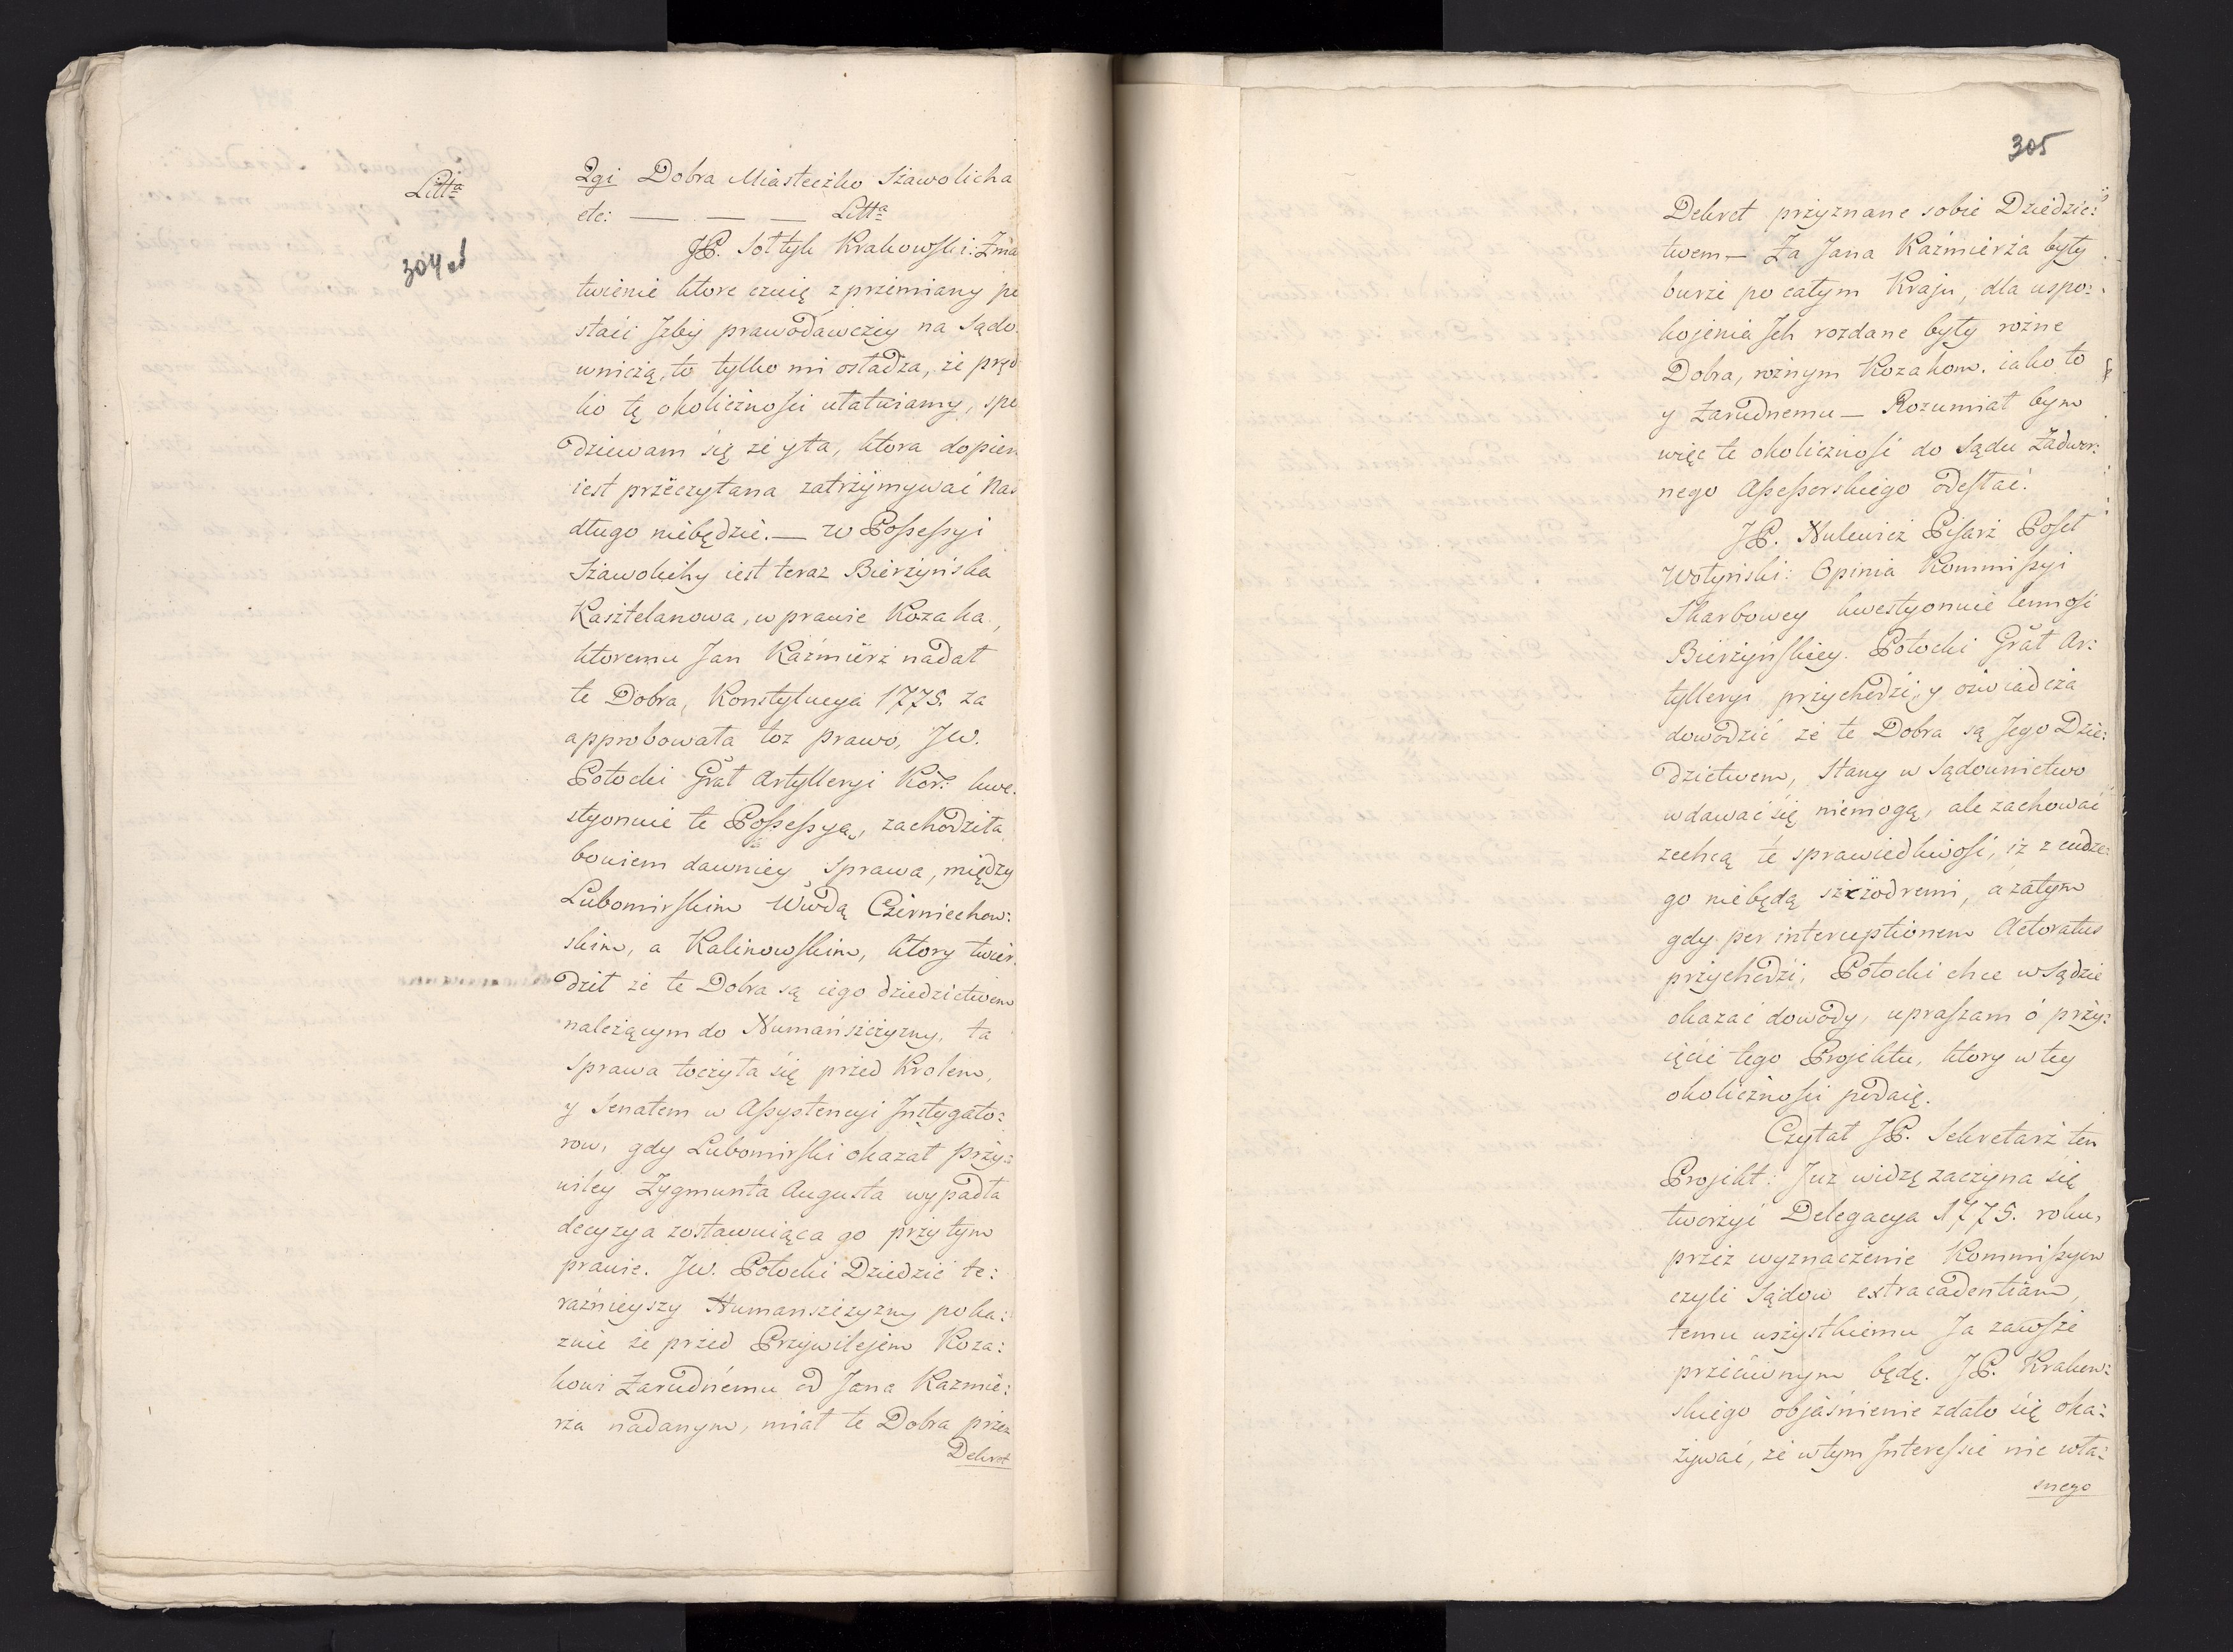 Litt<sup>a</sup>
304v
2gi Dobra Miasteczko Szawolicha
etc: — — — Litt<sup>a</sup>
JP. Sołtyk Krakowski: Zma
twienie ktore czuię z przemiany po
staci Jzby prawodawczey na Sądo
wniczą, to tylko mi osładza, że pręd
ko tę okoliczności ułatwiamy, spo
dziewam się że y ta, ktora dopier
iest przeczytana zatrzymywać Nas
długo niebędzie. — w Possessyi
Szawolichy iest teraz Bierzyńska
Kasztelanowa, w prawie Kozaka,
ktoremu Jan Kaźmierz nadał
te Dobra, Konstytucya 1775. za
approbowała toz prawo, JW.
Potocki Grał Artylleryi Kor: kwe
styonuie te Possessyą, zachodziła
bowiem dawniey Sprawa, między
Lubomirskim Wwdą Czerniechow:
skim, a Kalinowskim, ktory twier
dził że te Dobra są iego dziedzictwem
należącym do Numańszczyzny, ta
Sprawa toczyła się przed Krolem,
y Senatem w Assystencyi Jnstygato:
row, gdy Lubomirski okazał przy:
wiley Zygmunta Augusta wypadła
decyzya zostawuiąca go przy tym
prawie. JW. Potocki Dziedzic te:
raźnieyszy Humanszczyzny poka:
zuie że przed Przywilejem Koza:
kowi Zarudnemu od Jana Kazmie:
rza nadanym, miał te Dobra przez
Dekret
305
Dekret przyznane sobie Dziedzic:
twem — Za Jana Kaźmierza były
burze po całym Kraju, dla uspo:
kojenia Jch rozdane były rożne
Dobra, rożnym Kozakom. iako to
y Zarudnemu — Rozumiał bym
więc te okoliczność do Sądu Zadwor:
nego Assessorskiego odesłać.
JP. Nulewicz Pisarz Poseł
Wołyński: Opinia Kommissyi
Skarbowey kwestyonuie lenność
Bierzyńskiey. Potocki Grał Ar:
tylleryi przychodzi, y oswiadcza
dowodzić że te Dobra są Jego Dzie:
dzictwem, Stany w Sądownictwo
wdawać się niemogą, ale zachować
zechcą te sprawiedliwość, iż z cudze:
go niebędą szczodremi, a zatym
gdy per interceptionem Actoratus
przychodzi, Potocki chce w Sądzie
okazać dowody, upraszam o przy:
ięcie tego Projektu, ktory w tey
okoliczności podaię.
Czytał JP. Sekretarz ten
Projekt: Juz widzę zaczyna się
tworzyć Delegacya 1775. roku,
przez wyznaczenie Kommissyow
czyli Sądow extracadentiam,
temu wszystkiemu Ja zawsze
przeciwnym będę. JP. Krakow:
skiego objaśnienie zdało się oka:
zywać, że w tym Jnteressie nic wła:
snego